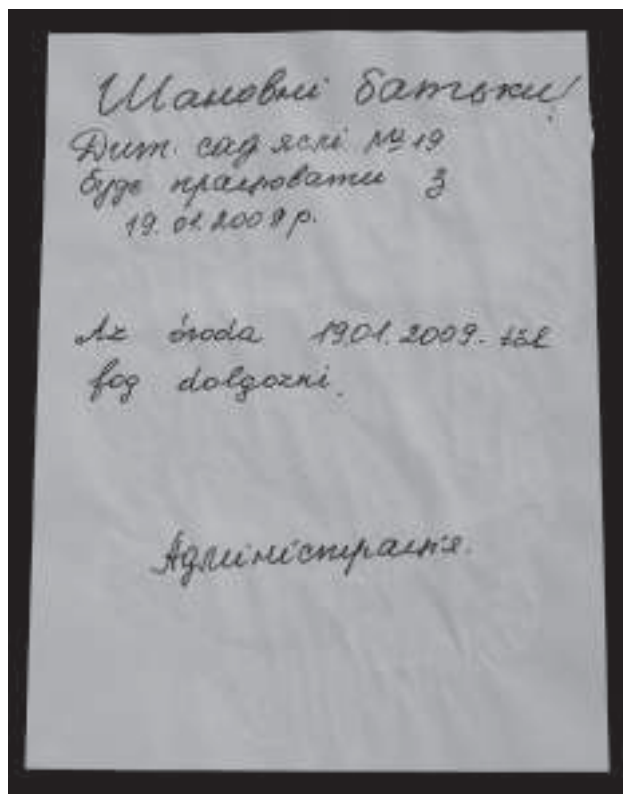 Шановні батьки!
Дит. сад ясла №19
буде працювати з
19.01.2009 р.
Az óvoda 1901.2009.-től
fog dolgozni.
Адміністрація.